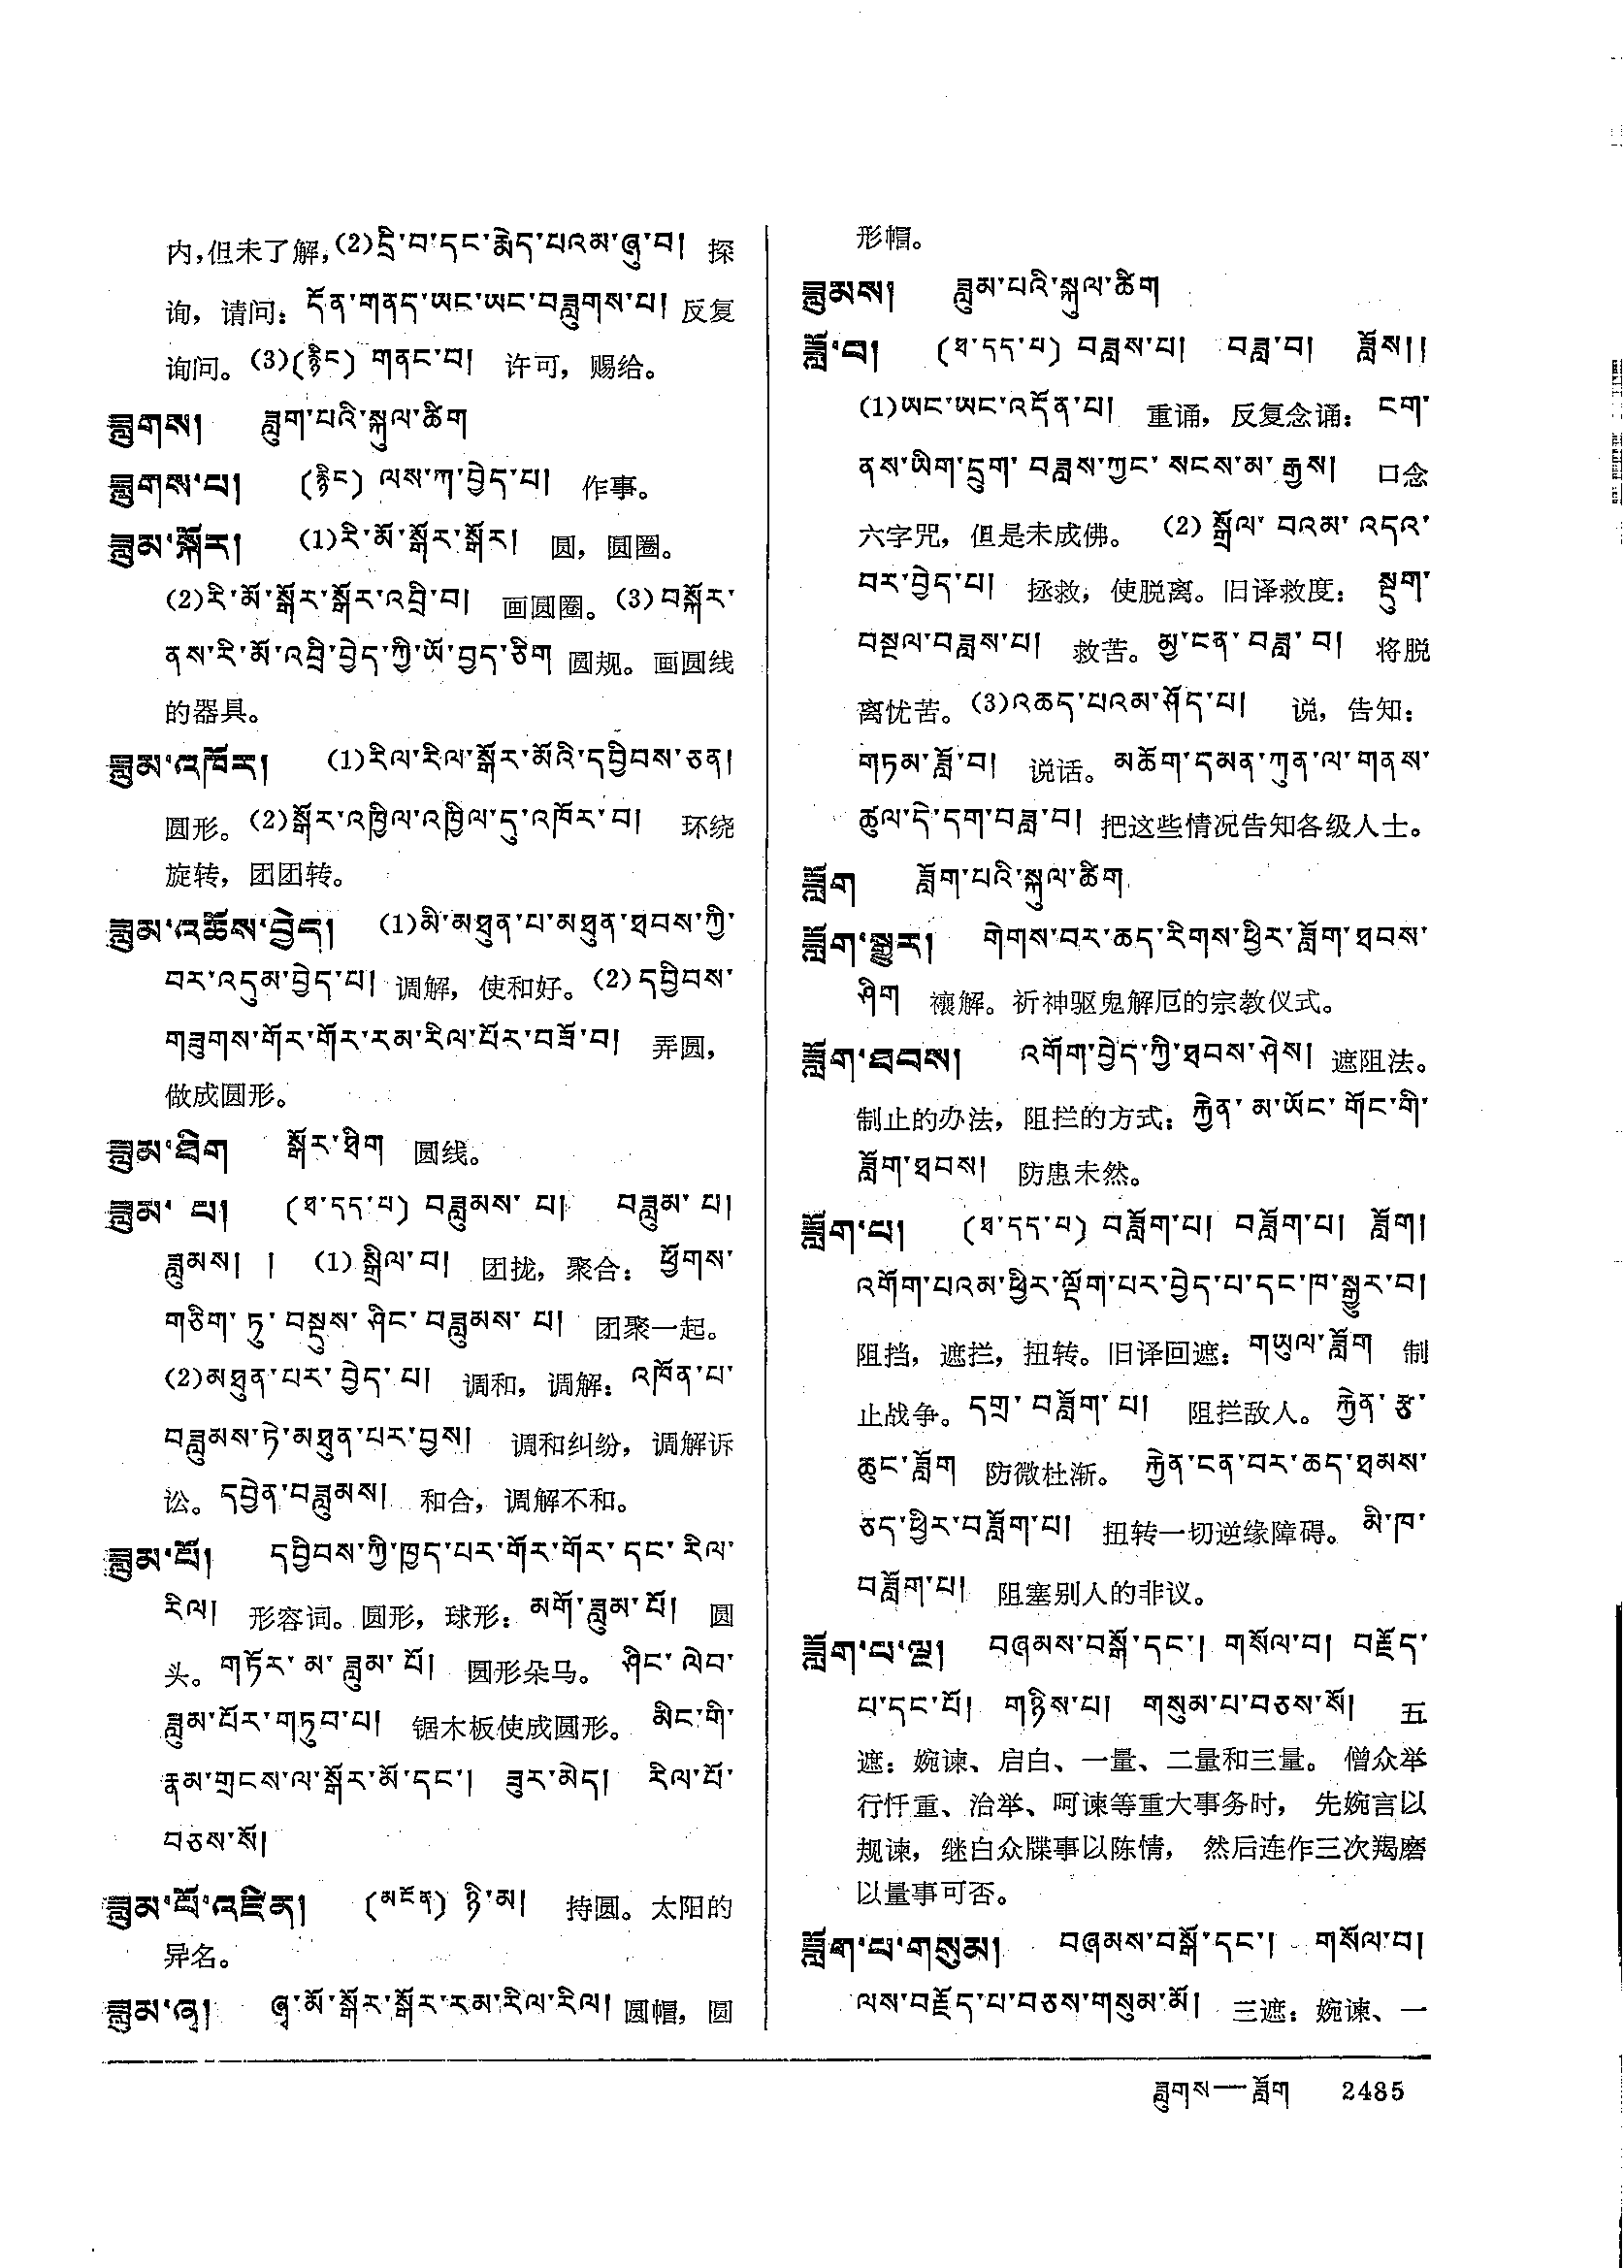 内,但未了解,(2)དྲི་བ་དང་རྨེད་པའམ་ཞུ་བ། 探
询，请问：དོན་གནད་ཡང་ཡང་བཟླུགས་པ། 反复
询问。(3)(རྙིང) གནང་བ། 许可，赐给。
ཟླུགས། ཟླུག་པའི་སྐུལ་ཚིག
ཟླུགས་པ། (རྙིང) ལས་ཀ་བྱེད་པ། 作事。
ཟླུམ་སྐོར། (1)རི་མོ་སྒོར་སྒོར། 圆，圆圈。
(2)རི་མོ་སྒོར་སྒོར་འབྲི་བ། 画圆圈。(3)བསྐོར་
ནས་རི་མོ་འབྲི་བྱེད་ཀྱི་ཡོ་བྱད་ཅིག 圆规。画圆线
的器具。
ཟླུམ་འཁོར། (1)རིལ་རིལ་སྒོར་མོའི་དབྱིབས་ཅན།
圆形。(2)སྒོར་འཁྱིལ་འཁྱིལ་དུ་འཁོར་བ། 环绕
旋转，团团转。
ཟླུམ་འཚོས་བྱེད། (1)མི་མཐུན་པ་མཐུན་ཐབས་ཀྱི་
བར་འདུམ་བྱེད་པ། 调解，使和好。(2)དབྱིབས་
གཟུགས་གོར་གོར་རམ་རིལ་པོར་བཟོ་བ། 弄圆，
做成圆形。
ཟླུམ་ཐིག སྒོར་ཐིག 圆线。
ཟླུམ་པ། (ཐ་དད་པ) བཟླུམས་པ། བཟླུམ་པ།
ཟླུམས། ། (1)སྒྲིལ་བ། 团拢，聚合：ཕྱོགས་
གཅིག་ཏུ་བསྡུས་ཤིང་བཟླུམས་པ། 团聚一起。
(2)མཐུན་པར་བྱེད་པ། 调和，调解：འཁོན་པ་
བཟླུམས་ཏེ་མཐུན་པར་བྱས། 调和纠纷，调解诉
讼。དབྱེན་བཟླུམས། 和合，调解不和。
ཟླུམ་པོ། དབྱིབས་ཀྱི་ཁྱད་པར་གོར་གོར་དང་རིལ་
རིལ། 形容词。圆形，球形：མགོ་ཟླུམ་པོ། 圆
头。གཏོར་མ་ཟླུམ་པོ། 圆形朵马。 ཤིང་ལེབ་
ཟླུམ་པོར་གཏུབ་པ། 锯木板使成圆形。 མིང་གི་
རྣམ་གྲངས་ལ་སྒོར་མོ་དང་། ཟུར་མེད། རིལ་པོ་
བཅས་སོ།
ཟླུམ་པོ་འཛིན། (མངོན) ཉི་མ། 持圆。太阳的
异名。
ཟླུམ་ཞྭ། ཞྭ་མོ་སྒོར་སྒོར་རམ་རིལ་རིལ། 圆帽，圆
形帽。
ཟླུམས། ཟླུམ་པའི་སྐུལ་ཚིག
ཟློ་བ། (ཐ་དད་པ) བཟླས་པ། བཟླ་བ། ཟློས།།
(1)ཡང་ཡང་འདོན་པ། 重诵，反复念诵：ངག་
ནས་ཡིག་དྲུག་བཟླས་ཀྱང་སངས་མ་རྒྱས། 口念
六字咒，但是未成佛。 (2)སྒྲོལ་བའམ་འདའ་
བར་བྱེད་པ། 拯救，使脱离。旧译救度：སྡུག་
བསྔལ་བཟླས་པ། 救苦。མྱ་ངན་བཟླ་བ། 将脱
离忧苦。(3)འཆད་པའམ་ཤོད་པ། 说，告知：
གཏམ་ཟློ་བ། 说话。མཆོག་དམན་ཀུན་ལ་གནས་
ཚུལ་དེ་དག་བཟླ་བ། 把这些情况告知各级人士。
ཟློག ཟློག་པའི་སྐུལ་ཚིག
ཟློག་སྒྱུར། གེགས་བར་ཆད་རིགས་ཕྱིར་ཟློག་ཐབས་
ཤིག 禳解。祈神驱鬼解厄的宗教仪式。
ཟློག་ཐབས། འགོག་བྱེད་ཀྱི་ཐབས་ཤེས། 遮阻法。
制止的办法，阻拦的方式：རྐྱེན་མ་ཡོང་གོང་གི་
ཟློག་ཐབས། 防患未然。
ཟློག་པ། (ཐ་དད་པ) བཟློག་པ། བཟློག་པ། ཟློག།
འགོག་པའམ་ཕྱིར་ལྡོག་པར་བྱེད་པ་དང་ཁ་སྒྱུར་བ།
阻挡，遮拦，扭转。旧译回遮：གཡུལ་ཟློག 制
止战争。དགྲ་བཟློག་པ། 阻拦敌人。 རྐྱེན་རྩྭ་
ཆུང་ཟློག 防微杜渐。 རྐྱེན་ངན་བར་ཆད་ཐམས་
ཅད་ཕྱིར་བཟློག་པ། 扭转一切逆缘障碍。མི་ཁ་
བཟློག་པ། 阻塞别人的非议。
ཟློག་པ་ལྔ། བཞམས་བསྒོ་དང་། གསོལ་བ། བརྗོད་
པ་དང་པོ། གཉིས་པ། གསུམ་པ་བཅས་སོ། 五
遮：婉谏、启白、一量、二量和三量。 僧众举
行忏重、治举、呵谏等重大事务时， 先婉言以
规谏，继白众牒事以陈情， 然后连作三次羯磨
以量事可否。
ཟློག་པ་གསུམ། བཞམས་བསྒོ་དང་། གསོལ་བ།
ལས་བརྗོད་པ་བཅས་གསུམ་མོ། 三遮：婉谏、一
ཟླུགས—ཟློག 2485